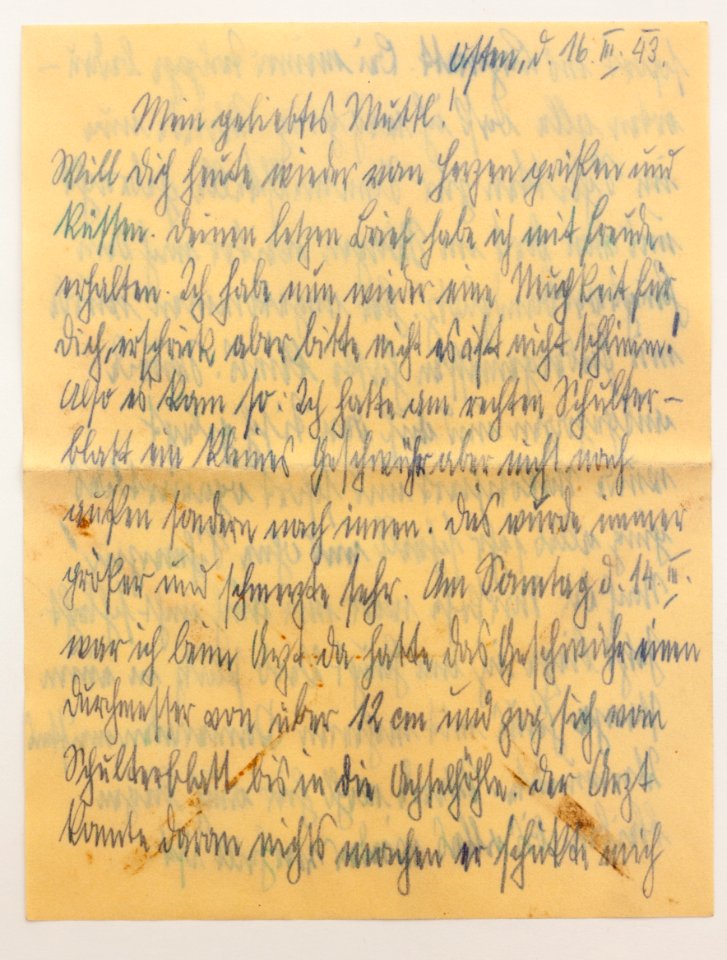 Osten, d. 16. III. 43.
Mein geliebtes Muttl!
Will dich heute wieder vom Herzen grüßen und
küssen. Deinen letzen Brief habe ich mit Freude
erhalten. Ich habe nun wieder eine für
dich, erschrick aber bitte nicht es ist nicht schlimm!
Also es kam so: Ich hatte am rechten Schulter-
blatt ein kleines Geschwühr aber nicht nach
außen sondern nach innen. Das wurde immer
größer und schmerzte sehr. Am Sonntag d. 14. III.
war ich beim Arzt da hatte das Geschwühr einen
Durchmesser von über 12 cm und zog sich vom
Schulterblatt bis in die Achselhöhle. Der Arzt
konnte daran nichts machen er schickte mich